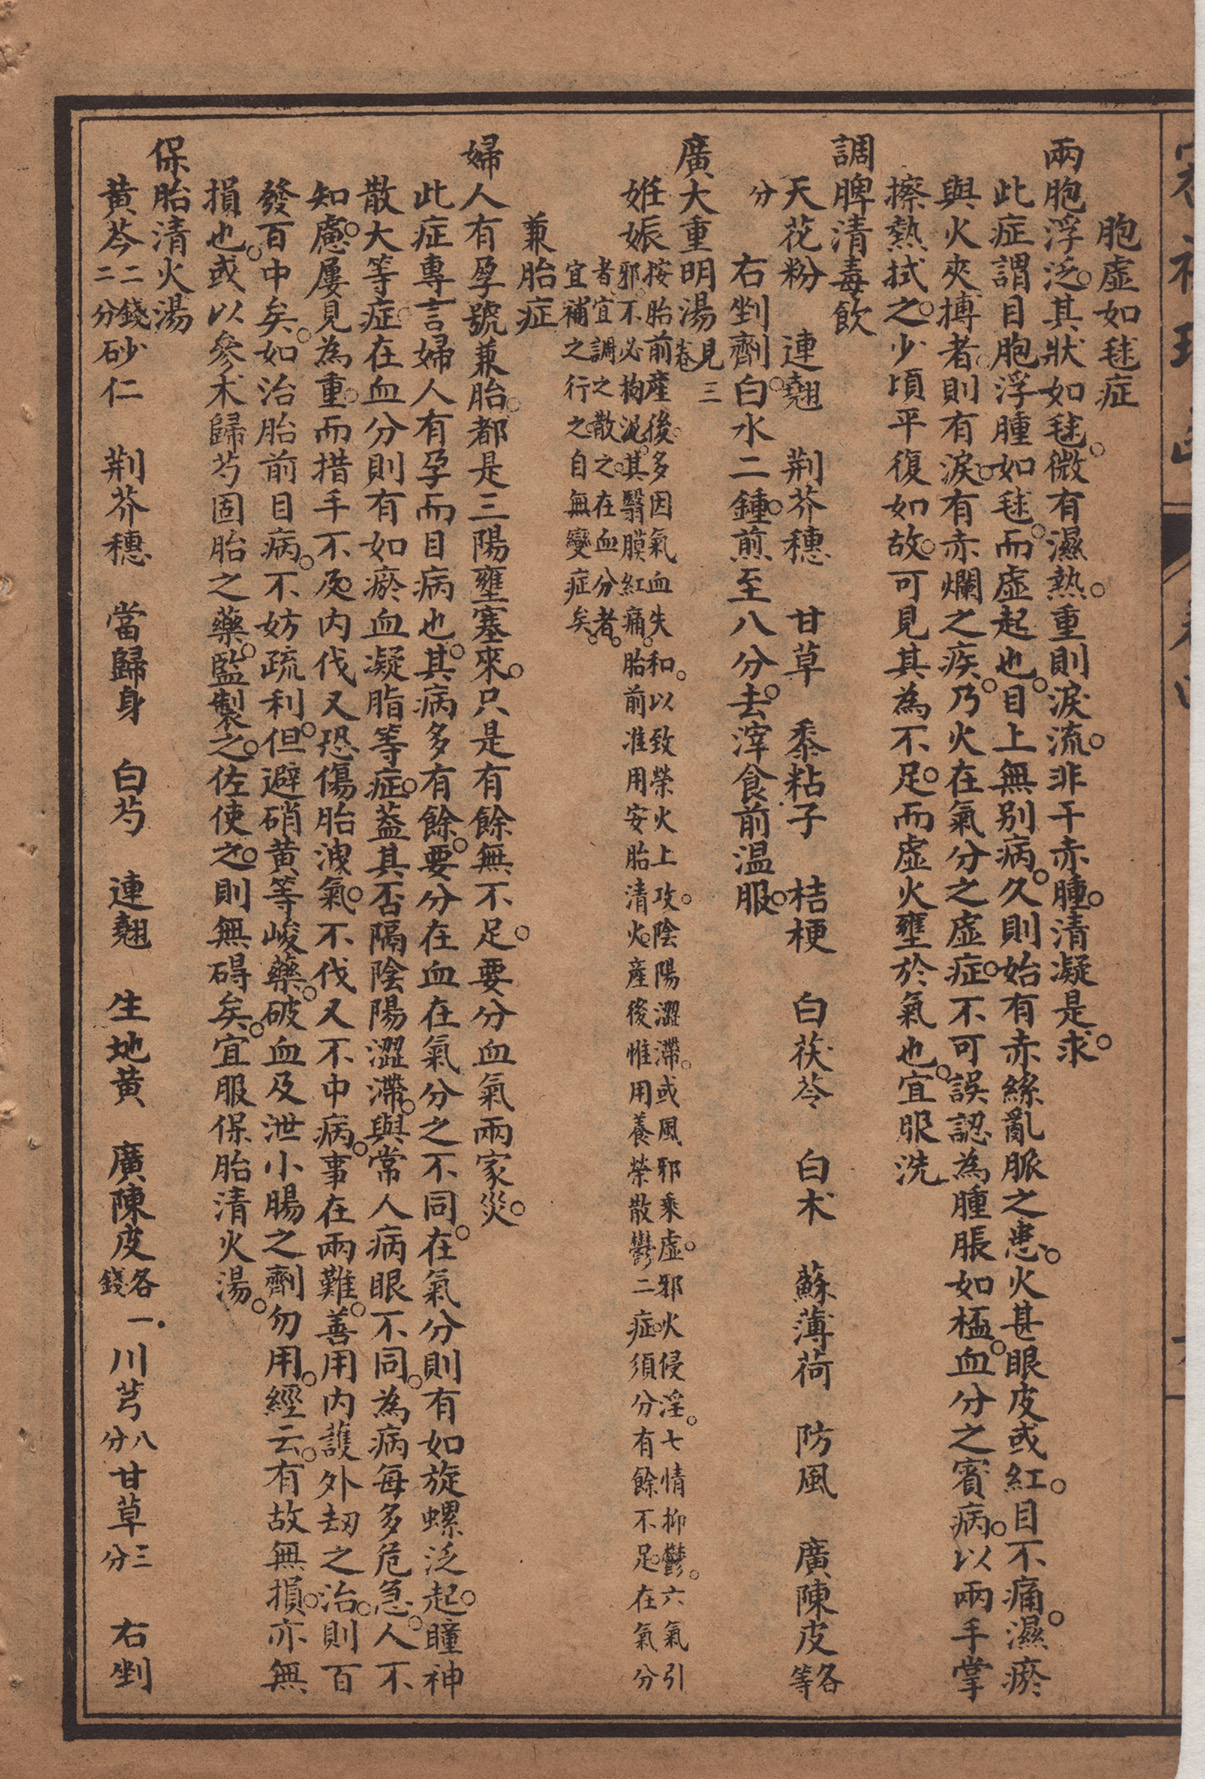 胞虛如毬症
兩胞浮泛。其狀如毬。微有濕熱。重則淚流。非干赤腫。清凝是求。
此症謂目胞浮腫如毬。而虛起也。目上無別病。久則始有赤絲亂脈之患。火甚眼皮或紅。目不痛。濕瘀
與火夾摶者。則有淚。有赤爛之疾。乃火在氣分之虛症。不可誤認為腫脹如桮。血分之賓病。以兩手掌
擦熱拭之。少頃平復如故。可見其為不足。而虛火壅於氣也。宜服洗
調脾清毒飲
天花粉 連翹 荆芥穗 甘草 黍粘子 桔梗 白茯苓 白朮 蘇薄荷 防風 廣陳皮各等
分
右剉劑。白水二鍾。煎至八分。去滓食前温服。
廣大重明湯見三卷
姙娠按胎前產後。多因氣血失和。以致榮火上攻。陰陽澀滯。或風邪乘虛。邪火侵淫。七情抑鬱。六氣引
邪。不必拘泥。其翳膜紅痛。胎前准用安胎清火。產後惟用養榮散鬱。二症須分有餘不足。在氣分
者。宜調之散之。在血分者。
宜補之行之。自無變症矣。
兼胎症
婦人有孕號兼胎。都是三陽壅塞來。只是有餘無不足。要分血氣兩家災。
此症專言婦人有孕而目病也。其病多有餘。要分在血在氣分之不同。在氣分則有如旋螺泛起。瞳神
散大等症。在血分則有如瘀血凝脂等症。蓋其否隔陰陽澀滯。與常人病眼不同。為病每多危急。人不
知慮。屢見為重。而措手不及。內伐又恐傷胎洩氣。不伐又不中病。事在兩難。善用內護外刼之治。則百
發百中矣。如治胎前目病。不妨疏利。但避硝黄等峻藥。破血及泄小腸之劑勿用。經云。有故無損。亦無
損也。或以參朮歸芍固胎之藥。監製之。佐使之。則無碍矣。宜服保胎清火湯。
保胎清火湯
黄芩二錢二分 砂仁少 荆芥穗 當歸身 白芍 連翹 生地黄 廣陳皮各一錢 川芎八分 甘草三分 右剉